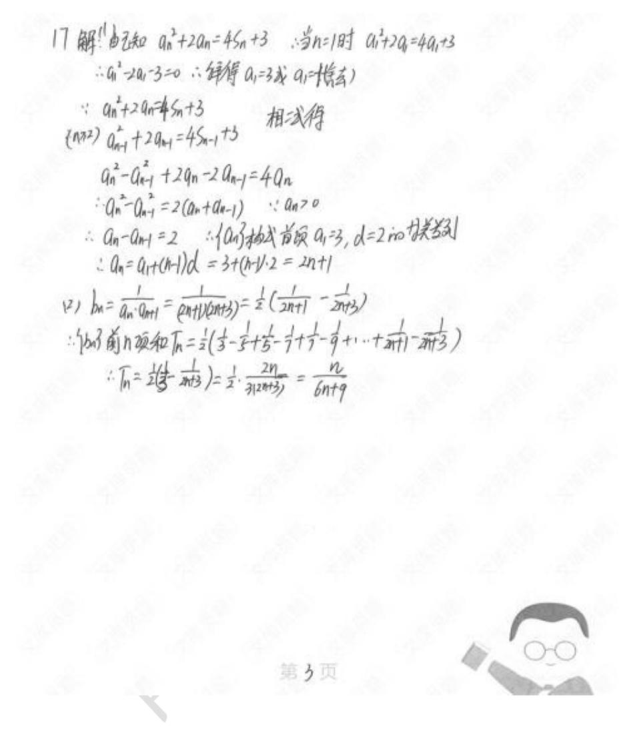 17 解:(1)由已知 aₙ²+2aₙ=4Sₙ+3 ∴当n=1时 a₁²+2a₁=4a₁+3
∴a₁²-2a₁-3=0 ∴解得 a₁=3或 a₁=-1(舍去)
∵ aₙ²+2aₙ=4Sₙ+3
(n≥2) aₙ₋₁²+2aₙ₋₁=4Sₙ₋₁+3 相减得
aₙ²-aₙ₋₁²+2aₙ-2aₙ₋₁=4aₙ
∴aₙ²-aₙ₋₁²=2(aₙ+aₙ₋₁) ∵aₙ>0
∴ aₙ-aₙ₋₁=2 ∴{aₙ} 首项 a₁=3, d=2的等差数列
∴ aₙ=a₁+(n-1)d=3+(n-1)·2=2n+1
(2) bₙ=1/(aₙ·aₙ₊₁)=1/((2n+1)(2n+3))=1/2(1/(2n+1)-1/(2n+3))
∴{bₙ}前n项和Tₙ=1/2(1/3-1/5+1/5-1/7+1/7-1/9+…+1/(2n+1)-1/(2n+3))
∴Tₙ=1/2(1/3-1/(2n+3))=1/2·2n/(3(2n+3))=n/(6n+9)
第 3 页